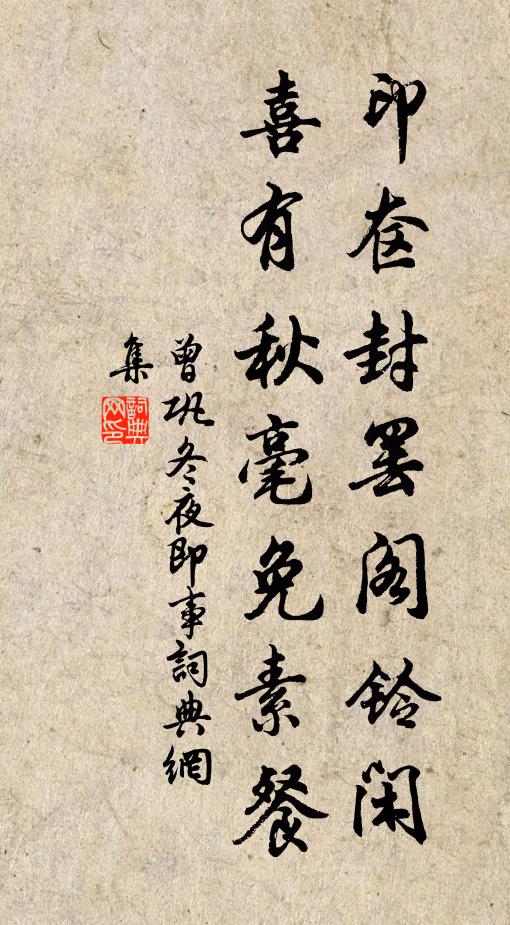 印奁封罢阁铃闲
喜有秋毫免素餐
曾巩冬夜即事詞典網
集
詞典
网印